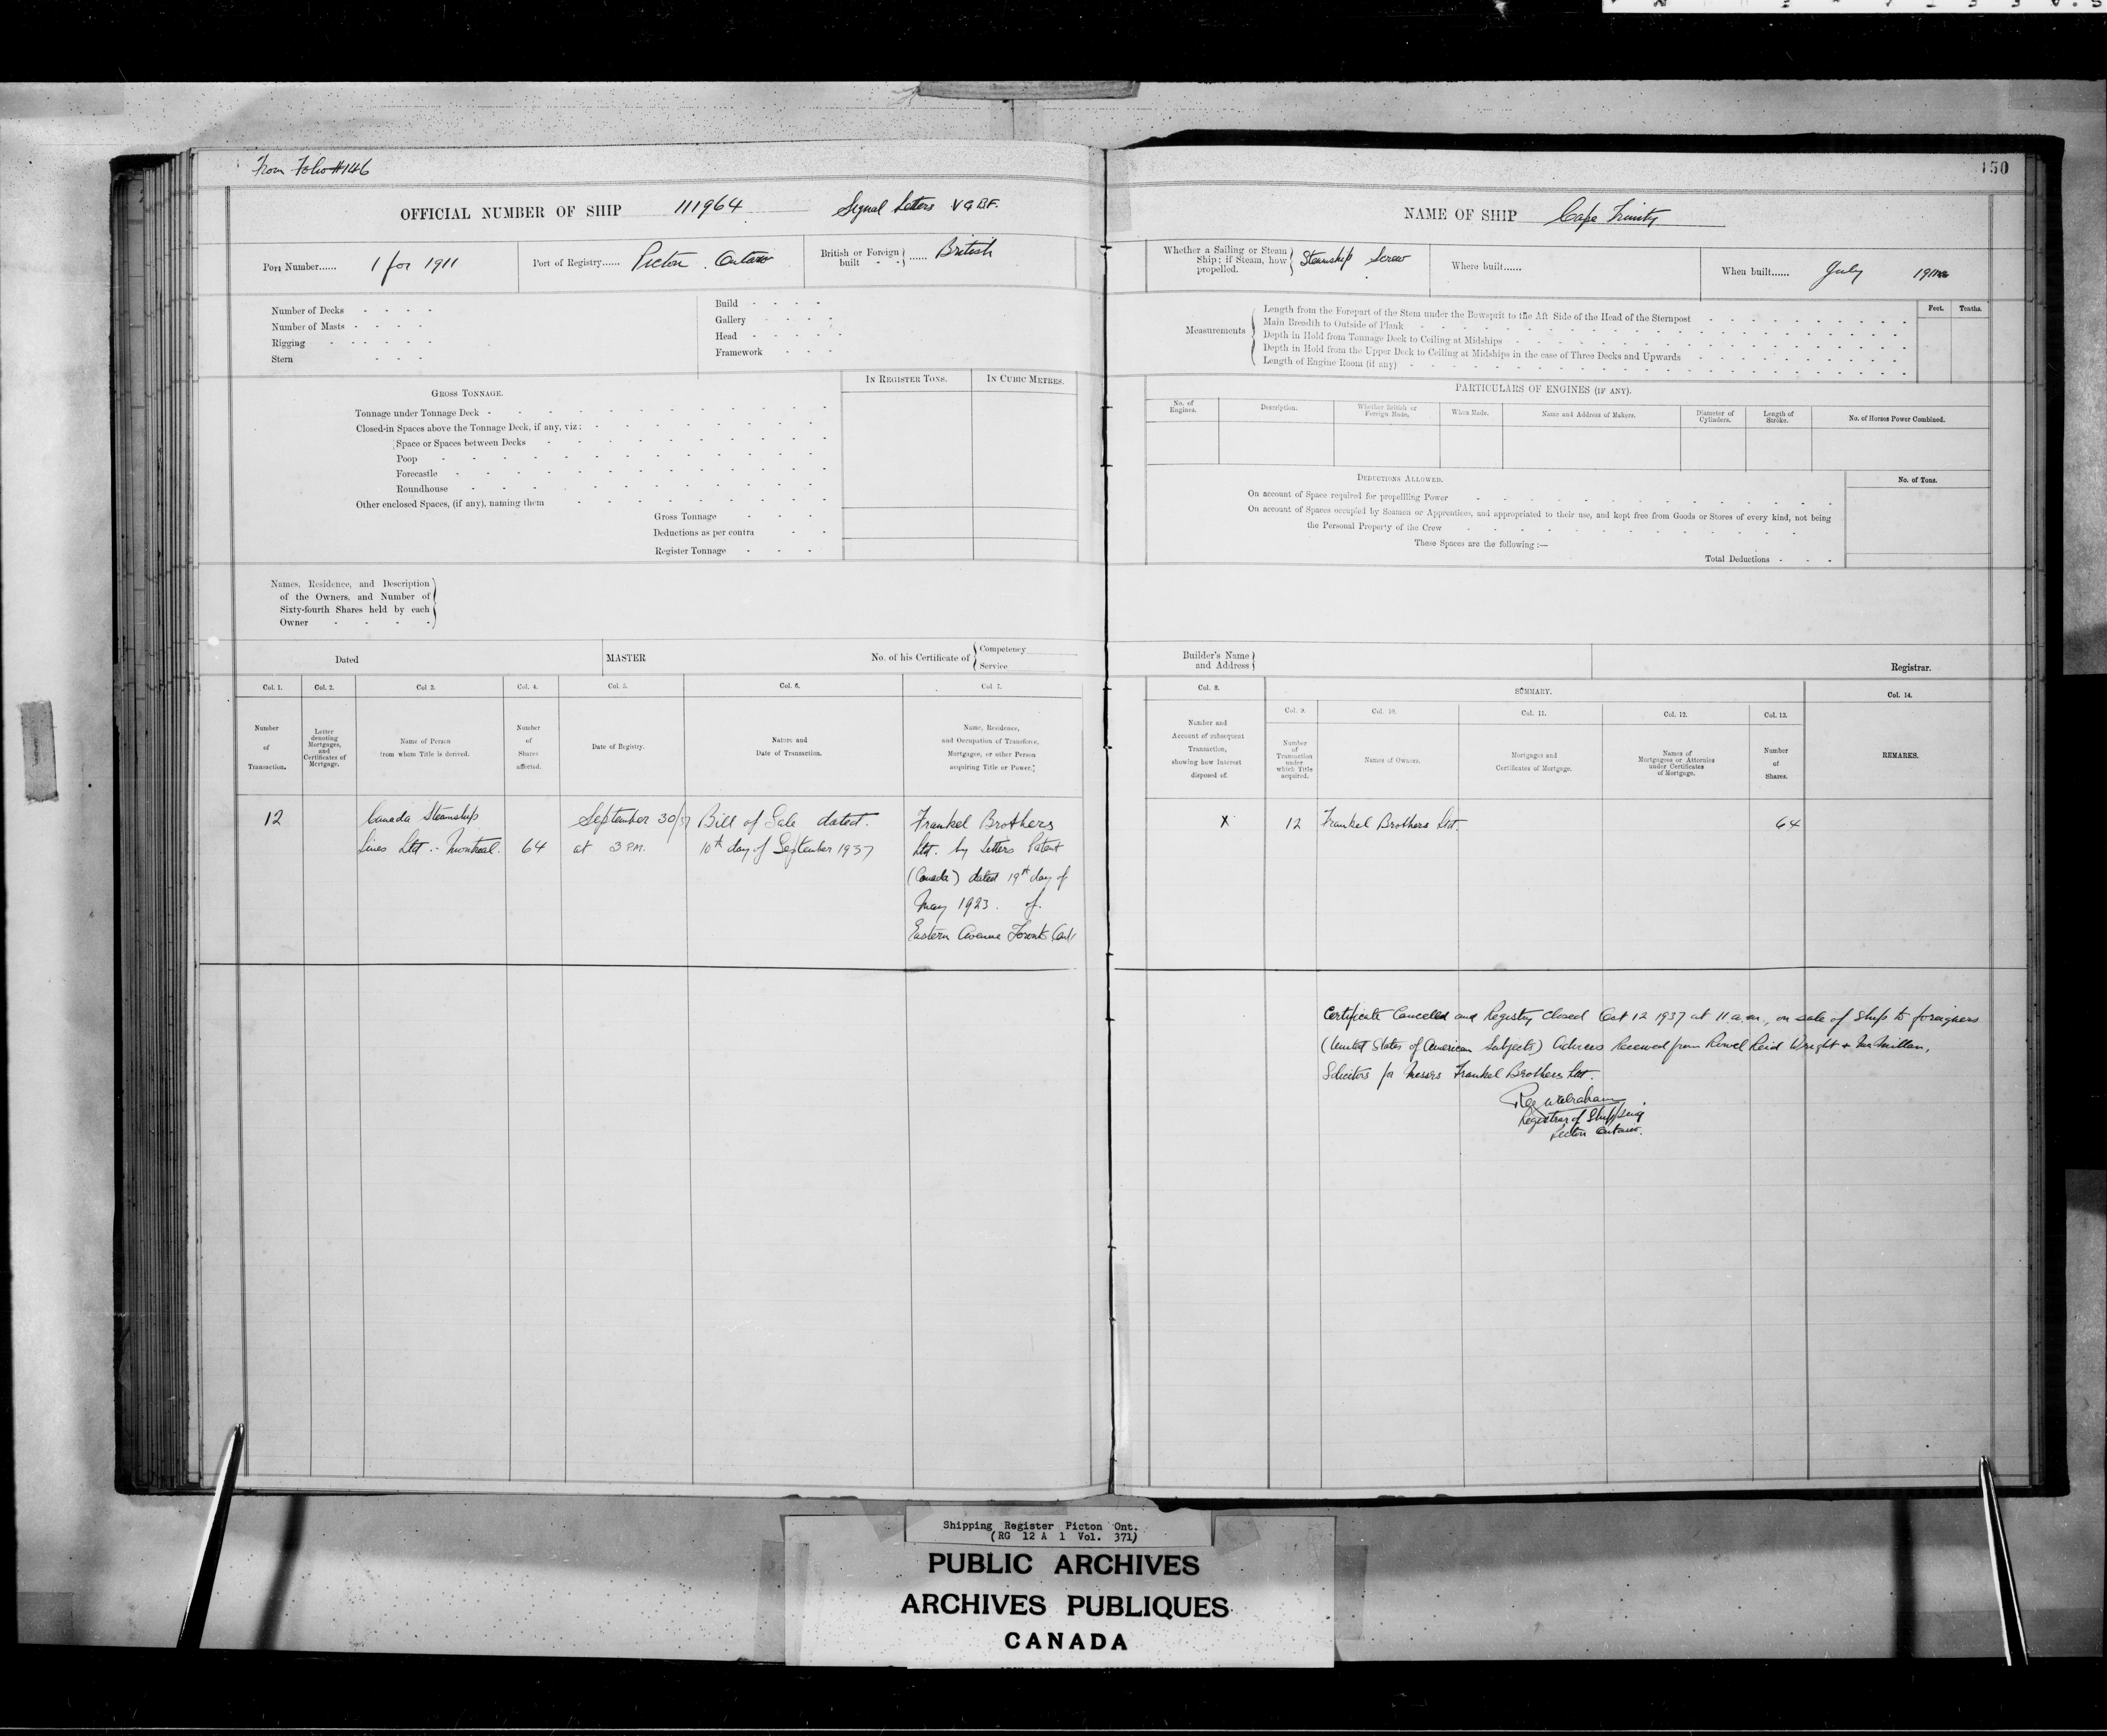 From Folio #146
150
OFFICIAL NUMBER OF SHIP 111964 Signal Letters VGBF.
NAME OF SHIP Cape Trinity
Port Number...... 1 for 1911
Port of Registry...... Picton. Ontario
British or Foreign built - - ...... British
Whether a Sailing or Steam Ship; if Steam, how propelled. Steamship Screw
Where built......
When built...... July 1911
Number of Decks - - - -
Number of Masts - - - -
Rigging - - - -
Stern - - -
Build - - - -
Gallery - - - -
Head - - - -
Framework - - -
Measurements
Length from the Forepart of the Stem under the Bowsprit to the Aft Side of the Head of the Sternpost
Main Breadth to Outside of Plank
Depth in Hold from Tonnage Deck to Ceiling at Midships
Depth in Hold from the Upper Deck to Ceiling at Midships in the case of Three Decks and Upwards
Length of Engine Room (if any)
Feet. Tenths.
GROSS TONNAGE.
IN REGISTER TONS. IN CUBIC METRES.
Tonnage under Tonnage Deck
Closed-in Spaces above the Tonnage Deck, if any, viz:
Space or Spaces between Decks
Poop
Forecastle
Roundhouse
Other enclosed Spaces, (if any), naming them
Gross Tonnage
Deductions as per contra
Register Tonnage
PARTICULARS OF ENGINES (IF ANY).
No. of Engines.
Description.
Whether British or Foreign Made.
When Made.
Name and Address of Makers.
Diameter of Cylinders.
Length of Stroke.
No. of Horses Power Combined.
DEDUCTIONS ALLOWED.
No. of Tons.
On account of Space required for propelling Power
On account of Spaces occupied by Seamen or Apprentices, and appropriated to their use, and kept free from Goods or Stores of every kind, not being
the Personal Property of the Crew
These Spaces are the following:—
Total Deductions
Names, Residence, and Description
of the Owners, and Number of
Sixty-fourth Shares held by each
Owner
Dated
MASTER
No. of his Certificate of
Competency
Service
Builder's Name
and Address
Registrar.
Col. 1. Col. 2. Col 3. Col. 4. Col. 5. Col. 6. Col. 7.
Number of Transaction.
Letter denoting Mortgages, and Certificates of Mortgage.
Name of Person from whom Title is derived.
Number of Shares affected.
Date of Registry.
Nature and Date of Transaction.
Name, Residence, and Occupation of Transferee, Mortgagee, or other Person acquiring Title or Power.
Col. 8.
Number and Account of subsequent Transaction, showing how Interest disposed of.
SUMMARY.
Col. 9. Col. 10. Col. 11. Col. 12. Col. 13.
Number of Transaction under which Title acquired.
Names of Owners.
Mortgages and Certificates of Mortgage.
Names of Mortgagees or Attornies under Certificates of Mortgage.
Number of Shares.
Col. 14.
REMARKS.
12
Canada Steamship
Lines Ltd. - Montreal.
64
September 30/37
at 3 P.M.
Bill of Sale dated.
10th day of September 1937
Frankel Brothers
Ltd. by Letters Patent
(Canada) dated 19th day of
May 1923. of.
Eastern Avenue Toronto Ont.
X
12
Frankel Brothers Ltd.
64
Certificate Cancelled and Registry closed Oct 12 1937 at 11 a.m., on sale of ship to foreigners
(United States of American Subjects) Advices Received from Rowel Reid Wright & McMillan,
Solicitors for Messrs Frankel Brothers Ltd.
Registrar of Shipping
Picton Ontario.
Shipping Register Picton Ont.
(RG 12 A 1 Vol. 371)
PUBLIC ARCHIVES
ARCHIVES PUBLIQUES
CANADA